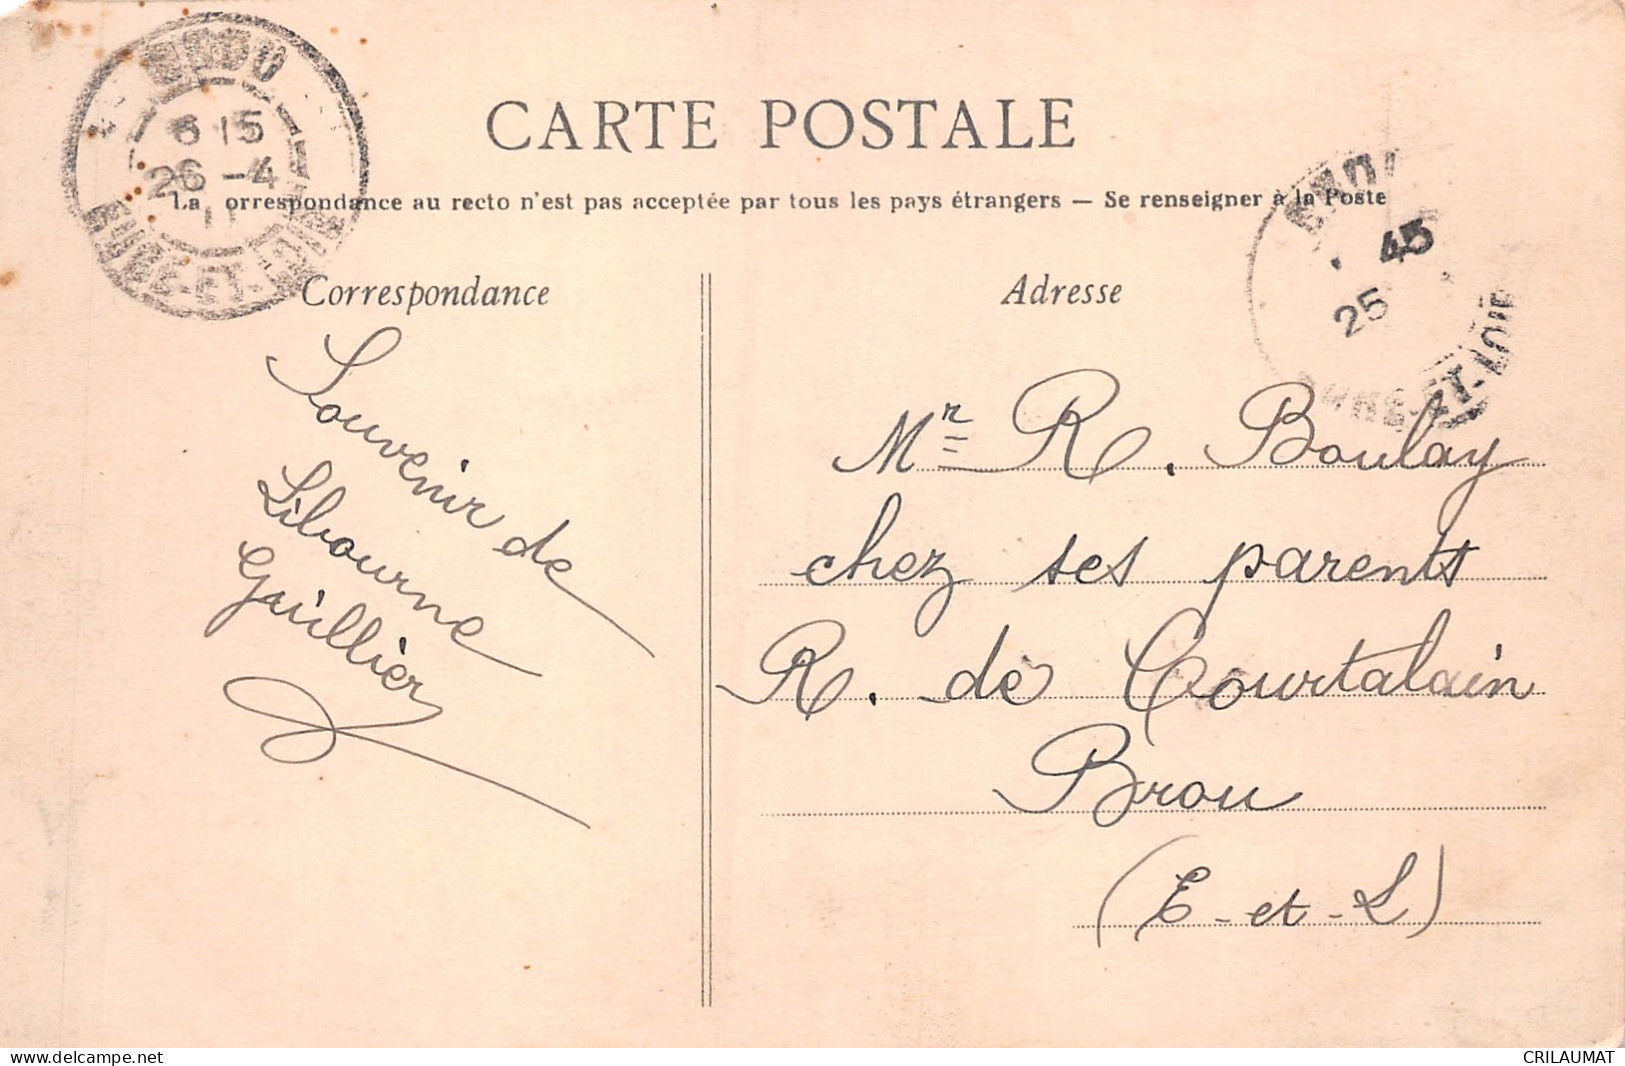 BROU
6 15
26 - 4
11
EURE-ET-LOIR
CARTE POSTALE
La orrespondance au recto n'est pas acceptée par tous les pays étrangers — Se renseigner à la Poste
BROU
45
25
EURE-ET-LOIR
Correspondance
Souvenir de
Libourne
Gaillier
Adresse
Mr R. Boulay
chez ses parents
R. de Courtalain
Brou
(E-et-L)
delcampe.net
CRILAUMAT